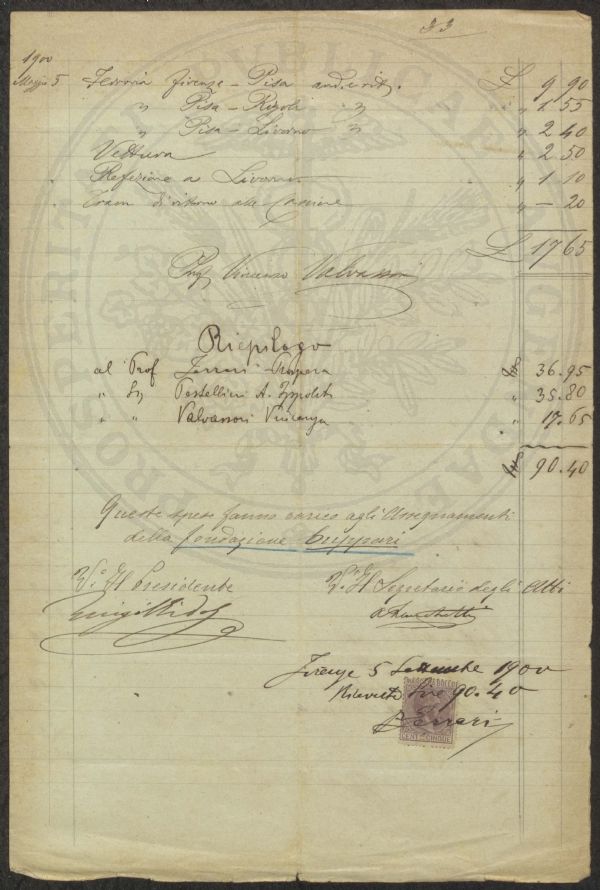 33
1900
Maggio 5 Ferrovia Firenze - Pisa and. e rit. £ 9 90
" Pisa - Rigoli " " 1 55
" Pisa - Livorno " " 2 40
Vettura " 2 50
Refezione a Livorno " 1 10
Tram di ritorno alle Cascine " — 20
£ 17 65
Ing Vincenzo Valvassori
Riepilogo
al Prof Ferrari Prospero 36.95
" Sig Pestellini A. Ippolito " 35.80
" " Valvassori Vincenzo " 17.65
90.40
Queste spese fanno carico agli Assegnamenti
della fondazione Cuppari
V.o Il Presidente
V.o Il Segretario degli Atti
Firenze 5 Settembre 1900
Ricevute Lire 90.40
P Ferrari
CENT. CINQUE
PROSPERITATI PVBLICAE AVGENDAE